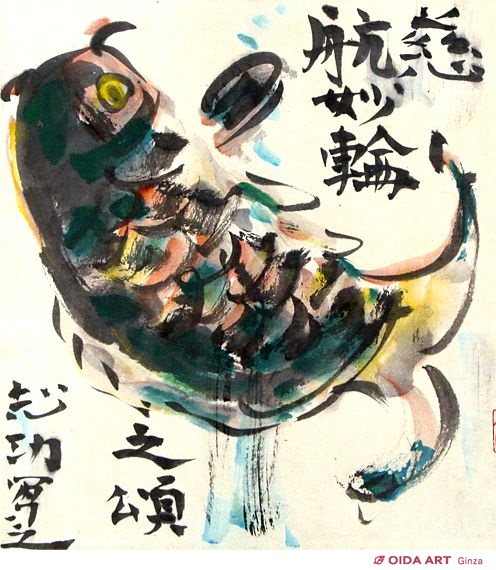 慈
航妙輪
之頌
志功冩之
OIDA ART Ginza